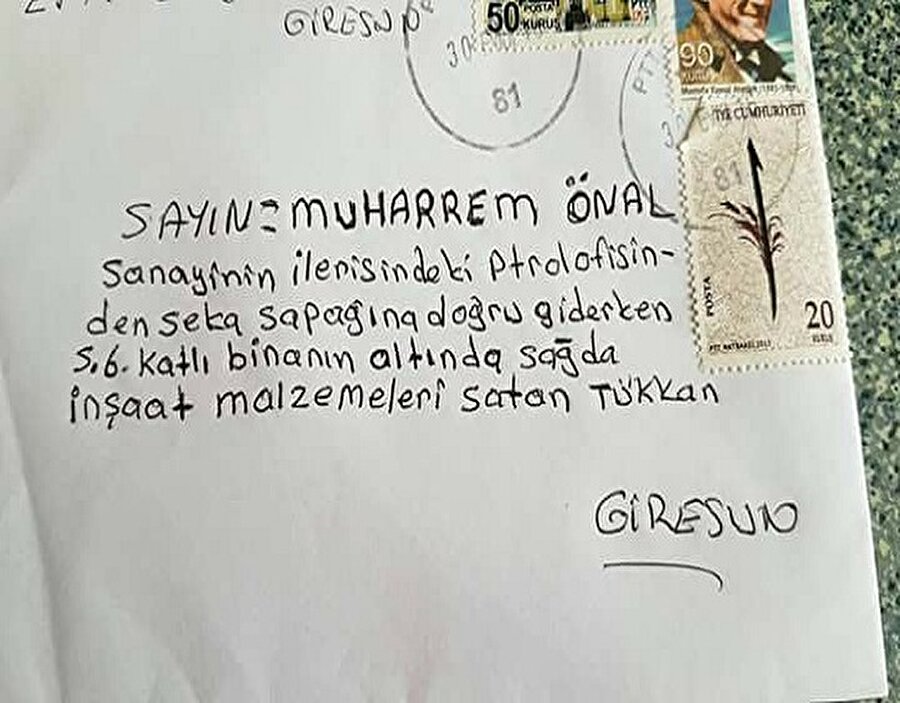 GİRESUN
50
POSTA
KURUŞ
PTT
30
81
90
KURUŞ
PTT
30
TÜRKİYE CUMHURİYETİ
81
SAYIN= MUHARREM ÖNAL
Sanayinin ilerisindeki Ptrolofisin-
den seka sapağına doğru giderken
5.6. katlı binanın altında sağda
inşaat malzemeleri satan TÜKKan
POSTA
20
KURUŞ
GİRESUN